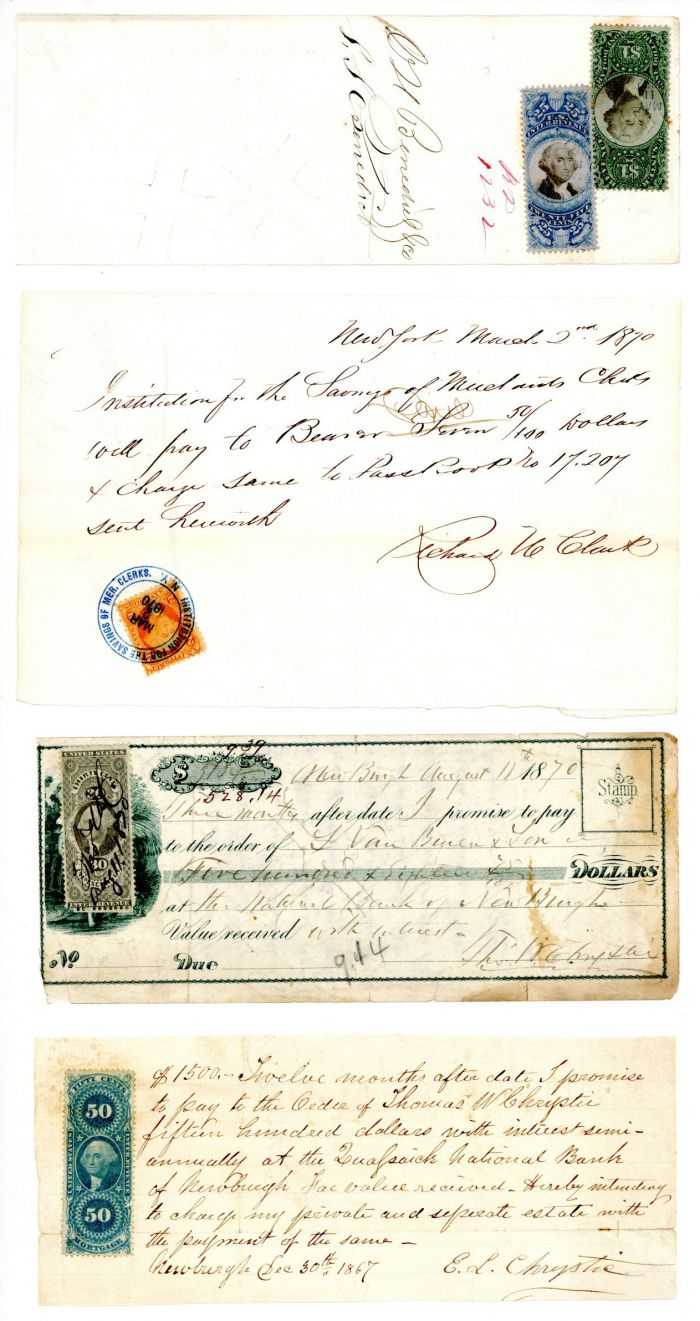 D W Benedict & Co
S. S. Benedict
1232
$1
25 25
U.S.
INTER. REVENUE
TWENTY FIVE
CENTS
25 25
$1
New York March 2nd 1870
Institution for the Savings of Merchants Clerks
will pay to Bearer Seven 50/100 Dollars
& charge same to Pass Book No 17.207
sent herewith
Richard U Clark
INSTITUTION FOR THE SAVINGS OF MER. CLERKS. N.Y.
MAR
1870
UNITED STATES
INTER. REVENUE
9.39
$
528.14
New Burgh August 11th 1870
Stamp
Three months after date I promise to pay
to the order of S Van Buren & Son
Five hundred & Eighteen DOLLARS
at the National Bank of New Burgh
Value received with interest
No Due
9.44
Thos W Chrystie
FIFTY CENTS
50
UNITED STATES
INTER. REVENUE
50
MORTGAGE
$1500 Twelve months after date I promise
to pay to the Order of Thomas W Chrystie
fifteen hundred dollars with interest semi-
annually at the Quassaick National Bank
of Newburgh For value received - Hereby intending
to charge my private and seperate estate with
the payment of the same -
Newburgh Dec 30th 1867
E. L. Chrystie